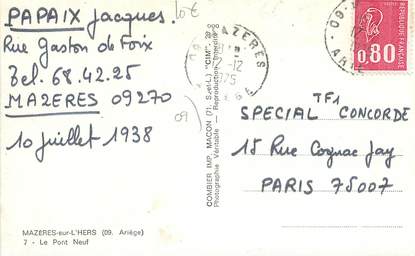 PAPAIX Jacques.
10€
Rue Gaston de Foix
Tel. 68.42.25
MAZERES 09270
09
10 juillet 1938
MAZERES-sur-L'HERS (09. Ariège)
7 - Le Pont Neuf
COMBIER IMP. MACON (71, S.-et-L.) "CIM"
Photographie Véritable - Reproduction interdite
MAZERES
12
1975
REPUBLIQUE FRANÇAISE
0,80
TF1
SPECIAL CONCORDE
15 Rue Cognac Jay
PARIS 75007